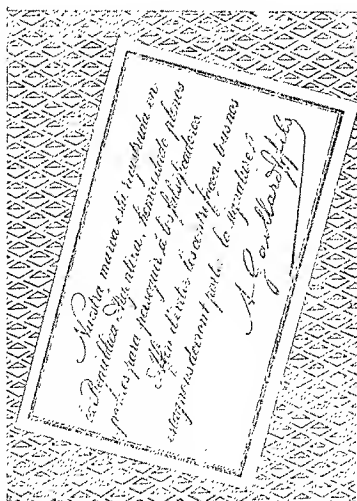 Nuestra marca está registrada en
la República Argentina, homos dado plenos
poderes para perseguir á los falsificadores.
Afin d'éviter les contrefaçons, tous nos
étiqueus devront porter la signature:
A. Gaillard & fils